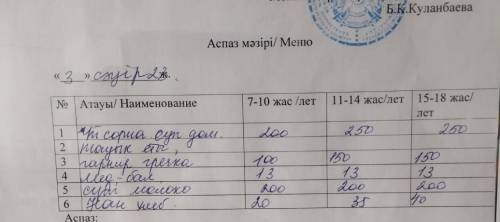 Б.К.Куланбаева
Аспаз мәзірі/ Меню
«3 »сәуір 23.
№ Атауы/ Наименование 7-10 жас /лет 11-14 жас/лет 15-18 жас / лет
1 сорпа суп дом. 200 250 250
2 тауық еті,
3 гарнир гречка 100 150 150
4 мед-бал 13 13 13
5 сүті молоко 200 200 200
6 Нан хлеб 20 35 40
Аспаз: